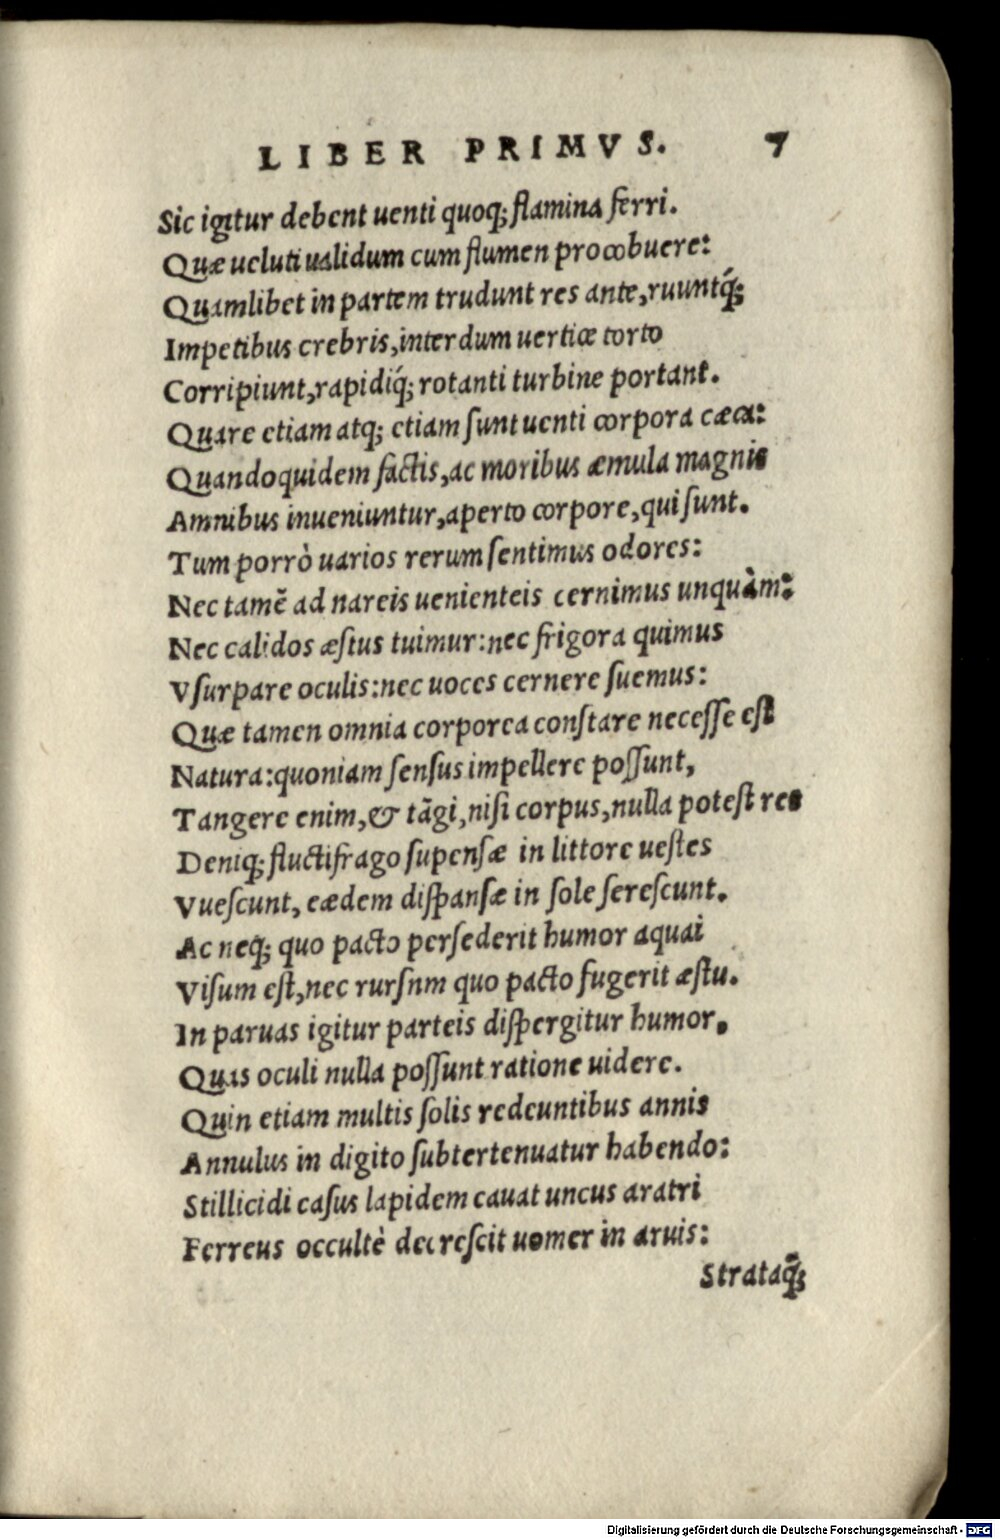 LIBER PRIMVS. 7
Sic igitur debent uenti quoq; flamina ferri.
Quæ ueluti ualidum cum flumen procobuere:
Quamlibet in partem trudunt res ante, ruuntq́;
Impetibus crebris, interdum uertice torto
Corripiunt, rapidiq́; rotanti turbine portant.
Quare etiam atq; etiam sunt uenti corpora cæca:
Quandoquidem factis, ac moribus æmula magnis
Amnibus inueniuntur, aperto corpore, qui sunt.
Tum porrò uarios rerum sentimus odores:
Nec tamẽ ad nareis uenienteis cernimus unquàm:
Nec calidos æstus tuimur: nec frigora quimus
Vsurpare oculis: nec uoces cernere suemus:
Quæ tamen omnia corporea constare necesse est
Natura: quoniam sensus impellere possunt,
Tangere enim, & tãgi, nisi corpus, nulla potest res
Deniq; fluctifrago supensæ in littore uestes
Vuescunt, eædem dispansæ in sole serescunt.
Ac neq; quo pacto persederit humor aquai
Visum est, nec rursnm quo pacto fugerit æstu.
In paruas igitur parteis dispergitur humor.
Quas oculi nulla possunt ratione uidere.
Quin etiam multis solis redeuntibus annis
Annulus in digito subtertenuatur habendo:
Stillicidi casus lapidem cauat uncus aratri
Ferreus occultè decrescit uomer in aruis:
Strataq́;
Digitalisierung gefördert durch die Deutsche Forschungsgemeinschaft - DFG